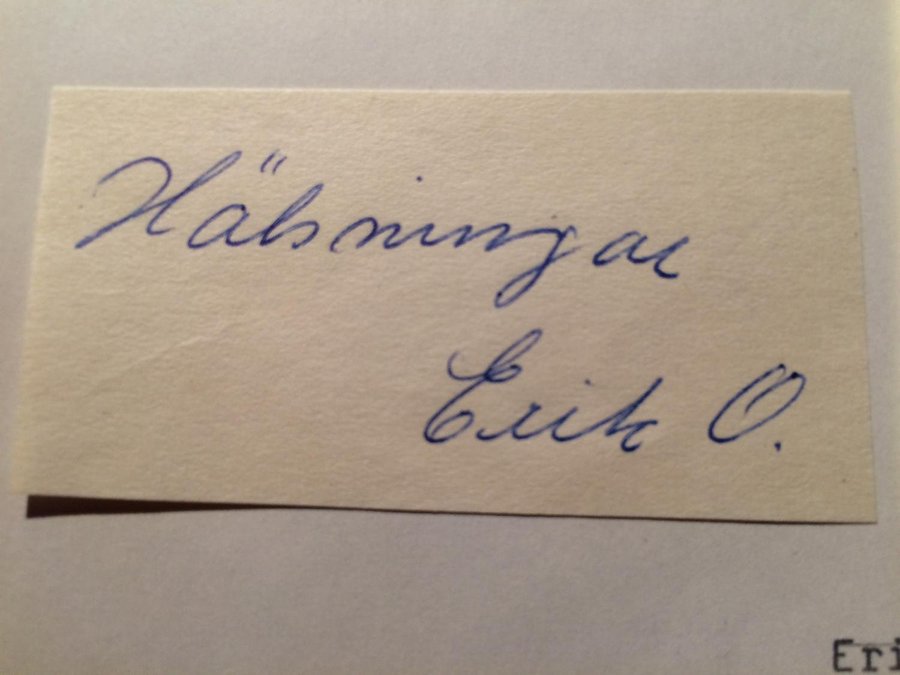 Hälsningar
Erik O.
Eri